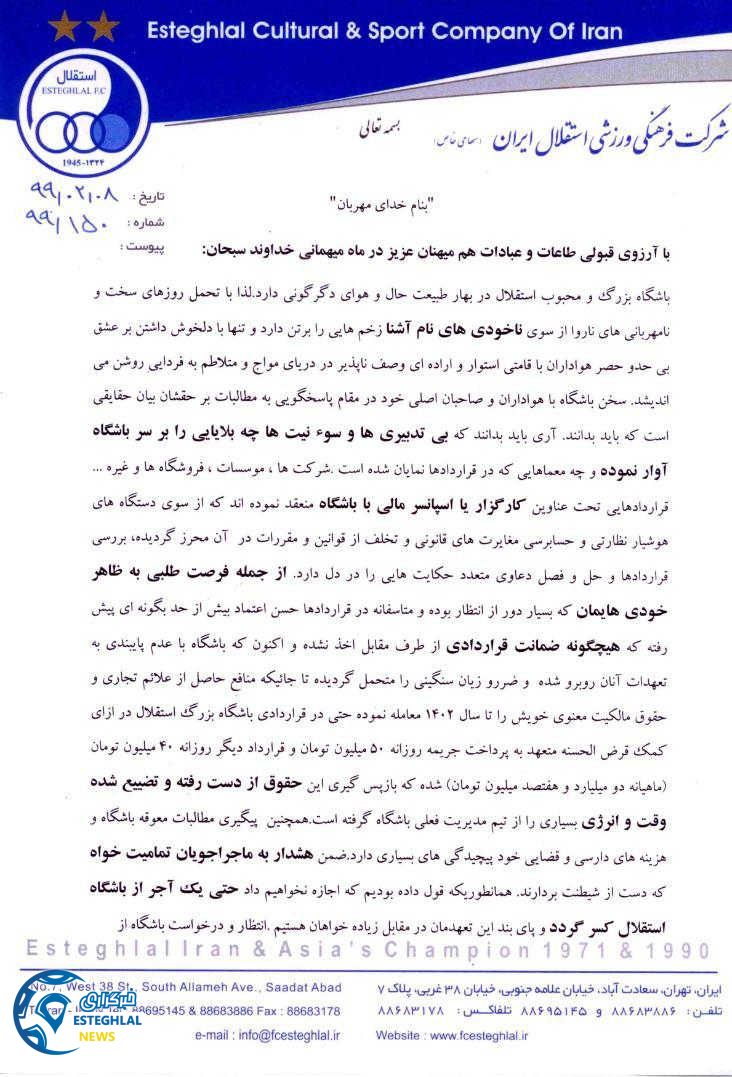 Esteghlal Cultural & Sport Company Of Iran
استقلال
ESTEGHLAL F.C
1945-۱۳۲۴
شرکت فرهنگی ورزشی استقلال ایران (سهامی خاص)
بسمه تعالی
تاریخ : ۹۹,۰۲,۰۸
شماره : ۹۹/۱۵۰
پیوست :
"بنام خدای مهربان"
با آرزوی قبولی طاعات و عبادات هم میهنان عزیز در ماه میهمانی خداوند سبحان:
باشگاه بزرگ و محبوب استقلال در بهار طبیعت حال و هوای دگرگونی دارد.لذا با تحمل روزهای سخت و
نامهربانی های ناروا از سوی ناخودی های نام آشنا زخم هایی را برتن دارد و تنها با دلخوش داشتن بر عشق
بی حدو حصر هواداران با قامتی استوار و اراده ای وصف ناپذیر در دریای مواج و متلاطم به فردایی روشن می
اندیشد. سخن باشگاه با هواداران و صاحبان اصلی خود در مقام پاسخگویی به مطالبات بر حقشان بیان حقایقی
است که باید بدانند. آری باید بدانند که بی تدبیری ها و سوء نیت ها چه بلایایی را بر سر باشگاه
آوار نموده و چه معماهایی که در قراردادها نمایان شده است .شرکت ها ، موسسات ، فروشگاه ها و غیره ...
قراردادهایی تحت عناوین کارگزار یا اسپانسر مالی با باشگاه منعقد نموده اند که از سوی دستگاه های
هوشیار نظارتی و حسابرسی مغایرت های قانونی و تخلف از قوانین و مقررات در آن محرز گردیده، بررسی
قراردادها و حل و فصل دعاوی متعدد حکایت هایی را در دل دارد. از جمله فرصت طلبی به ظاهر
خودی هایمان که بسیار دور از انتظار بوده و متاسفانه در قراردادها حسن اعتماد بیش از حد بگونه ای پیش
رفته که هیچگونه ضمانت قراردادی از طرف مقابل اخذ نشده و اکنون که باشگاه با عدم پایبندی به
تعهدات آنان روبرو شده و ضررو زیان سنگینی را متحمل گردیده تا جائیکه منافع حاصل از علائم تجاری و
حقوق مالکیت معنوی خویش را تا سال ۱۴۰۲ معامله نموده حتی در قراردادی باشگاه بزرگ استقلال در ازای
کمک قرض الحسنه متعهد به پرداخت جریمه روزانه ۵۰ میلیون تومان و قرارداد دیگر روزانه ۴۰ میلیون تومان
(ماهیانه دو میلیارد و هفتصد میلیون تومان) شده که بازپس گیری این حقوق از دست رفته و تضییع شده
وقت و انرژی بسیاری را از تیم مدیریت فعلی باشگاه گرفته است.همچنین پیگیری مطالبات معوقه باشگاه و
هزینه های دارسی و قضایی خود پیچیدگی های بسیاری دارد.ضمن هشدار به ماجراجویان تمامیت خواه
که دست از شیطنت بردارند. همانطوریکه قول داده بودیم که اجازه نخواهیم داد حتی یک آجر از باشگاه
استقلال کسر گردد و پای بند این تعهدمان در مقابل زیاده خواهان هستیم .انتظار و درخواست باشگاه از
Esteghlal Iran & Asia's Champion 1971 & 1990
No.7, West 38 St., South Allameh Ave., Saadat Abad
88695145 & 88683886 Fax : 88683178
e-mail : info@fcesteghlal.ir
ایران، تهران، سعادت آباد، خیابان علامه جنوبی، خیابان ۳۸ غربی، پلاک ۷
تلفن : ۸۸۶۸۳۸۸۶ و ۸۸۶۹۵۱۴۵ تلفاکس : ۸۸۶۸۳۱۷۸
Website : www.fcesteghlal.ir
خبرگزاری
ESTEGHLAL
NEWS